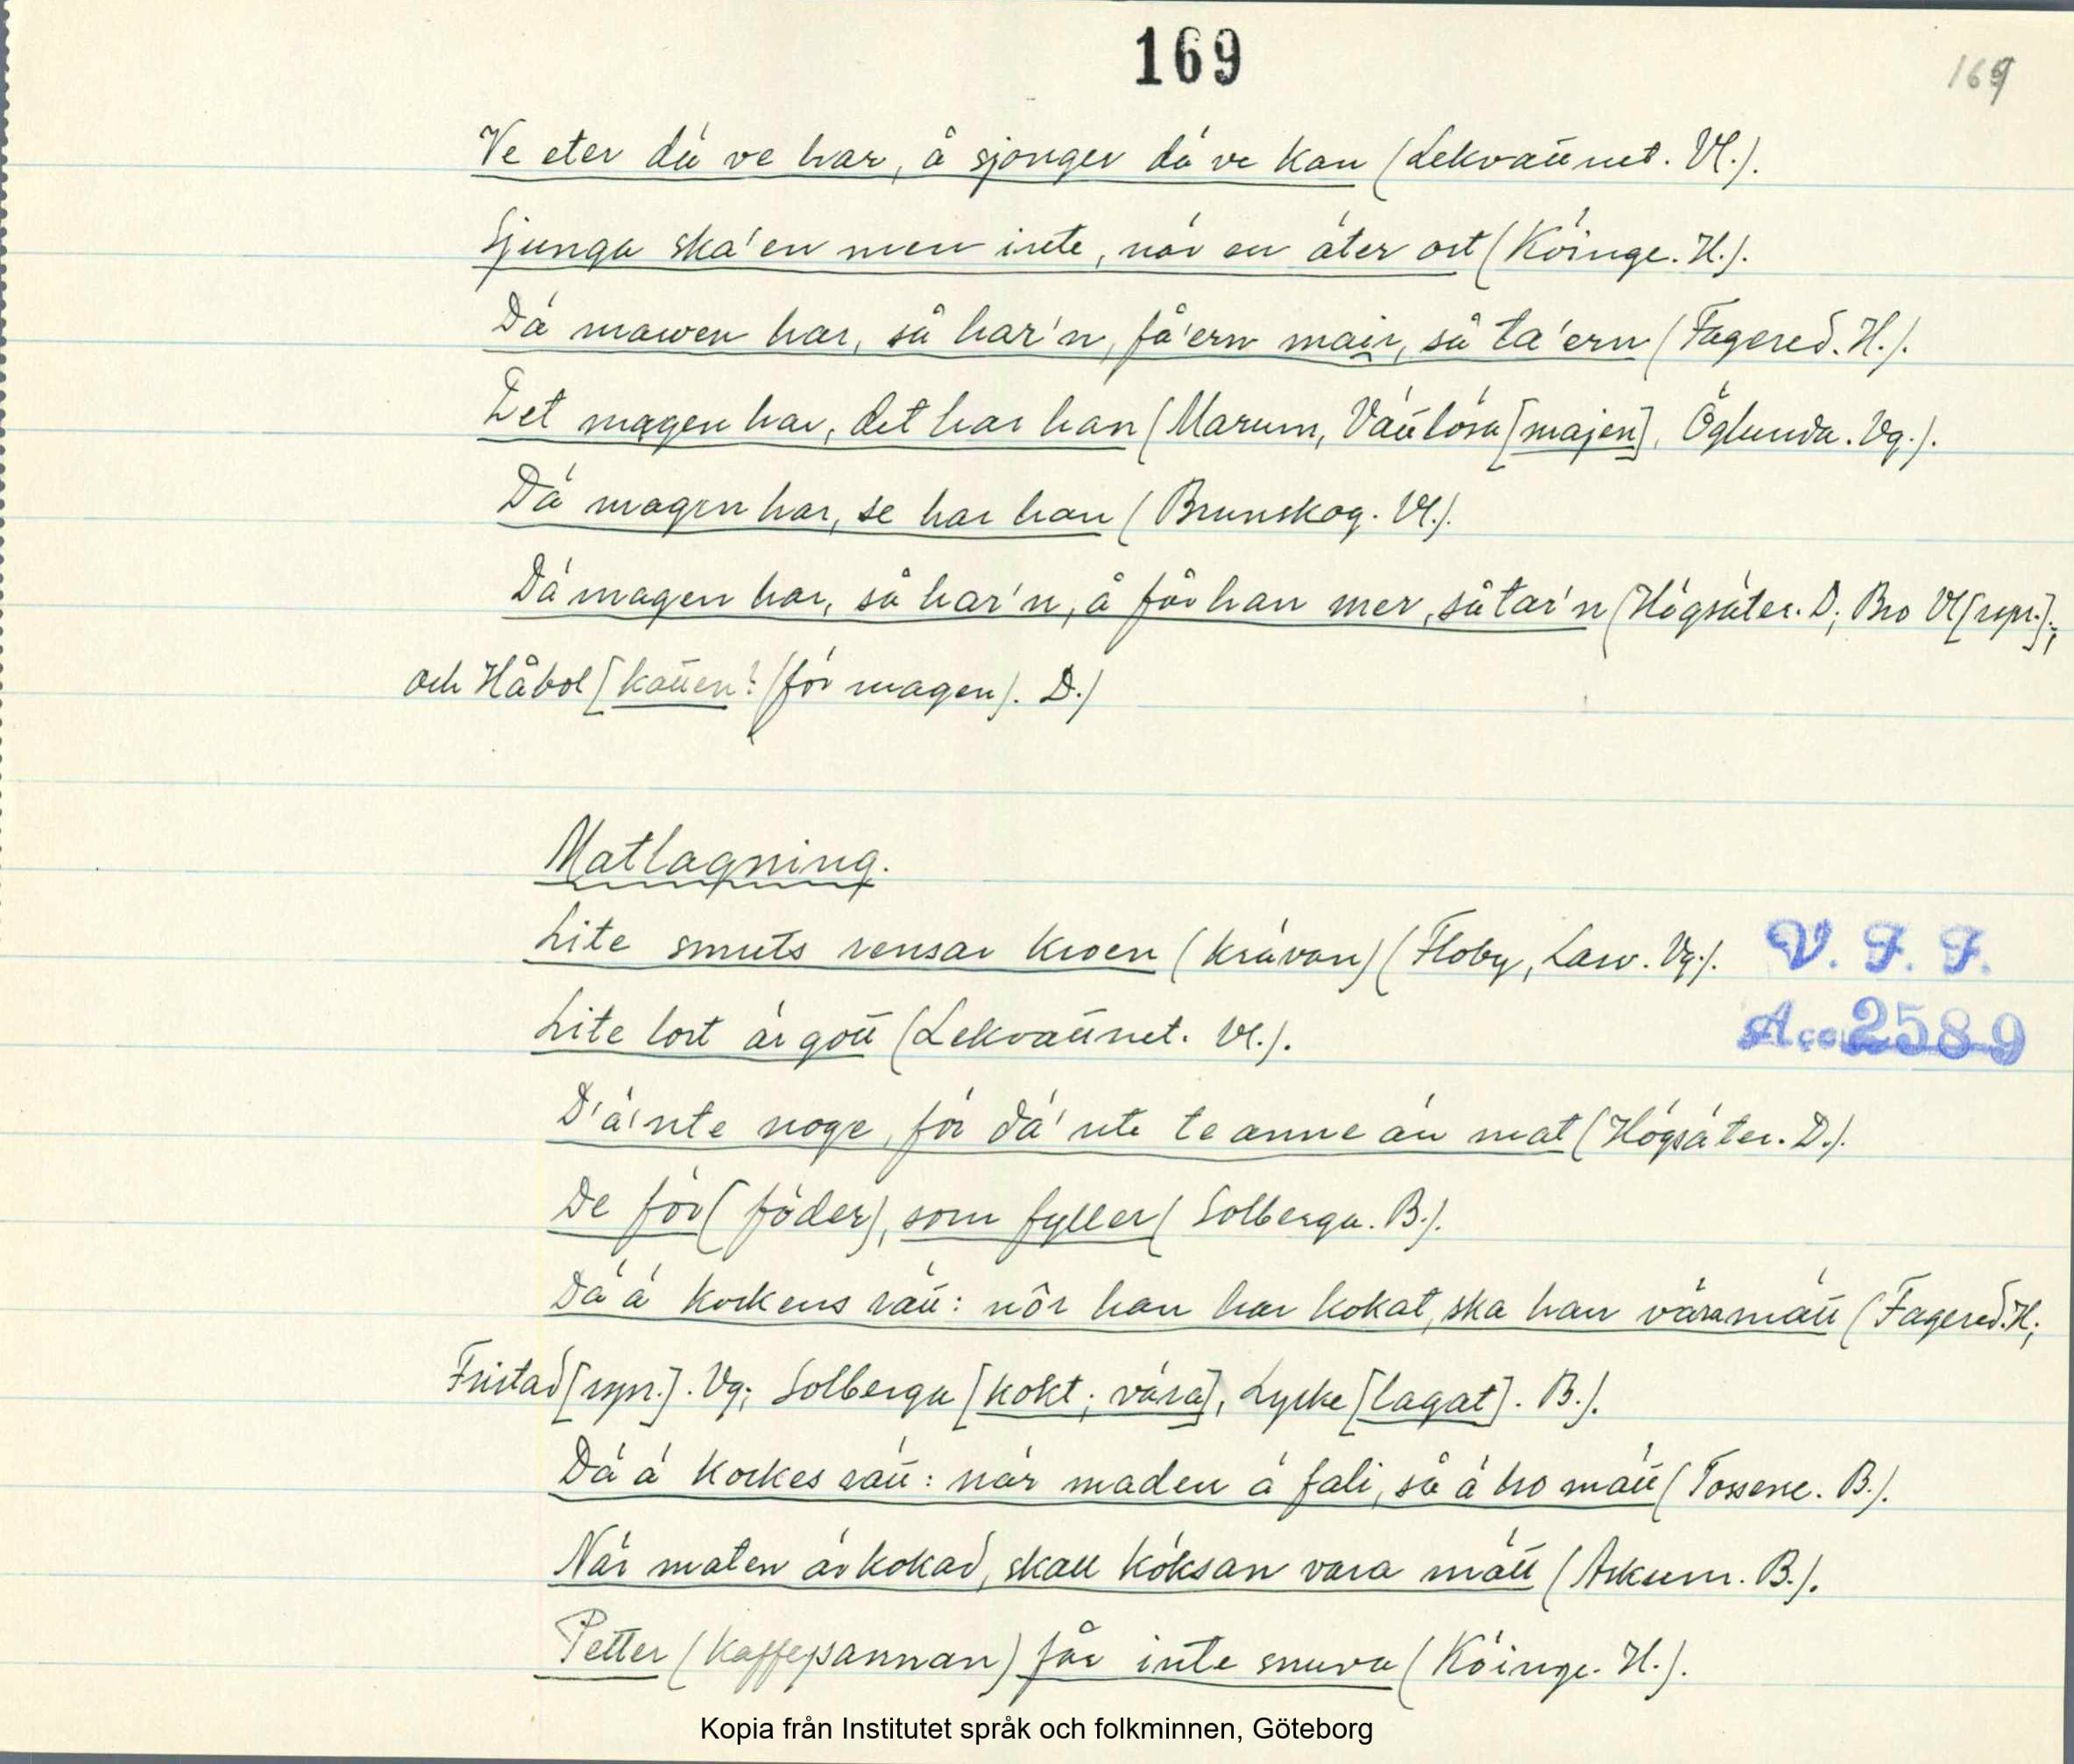 169
169
Ve eter dä ve har, å sjonger dä ve kan (Lekvattnet. Vl.).
Sjunga ska'en men inte, när en äter ost (Köinge. H.).
Dä mawen har, så har'n, få'ern mair, så ta'ern (Fagered. H.).
Det magen har, det har han (Marum, Vättlösa [majen], Öglunda. Vg.).
Dä magen har, se har han (Brunskog. Vl.).
Dä magen har, så har'n, å får han mer, så tar'n (Högsäter. D; Bro Vl [repr.];
och Håbol [katten! (för magen). D.)
Matlagning.
Lite smuts rensar kroen (krävan) (Floby, Larv. Vg.).
V. F. F.
Lite lort är gott (Lekvattnet. Vl.).
Acc. 2589
D'ä'nte noge, för dä'nte te anne än mat (Högsäter. D.).
De för (föder), som fyller (Solberga. B.).
Dä ä kockens rätt: nôr han har kokat, ska han vära mätt (Fagered. H;
Fristad [repr.]. Vg; Solberga [kokt; vära], Lycke [lagat]. B.).
Dä ä kockes rätt: när maden ä fali, så ä ho mätt (Tossene. B.).
När maten är kokad, skall köksan vara mätt (Askum. B.).
Petter (kaffepannan) får inte snuva (Köinge. H.).
Kopia från Institutet språk och folkminnen, Göteborg